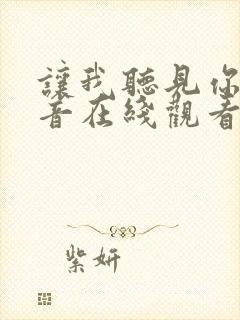 讓我聽見你
音在綫觀看
紫妍